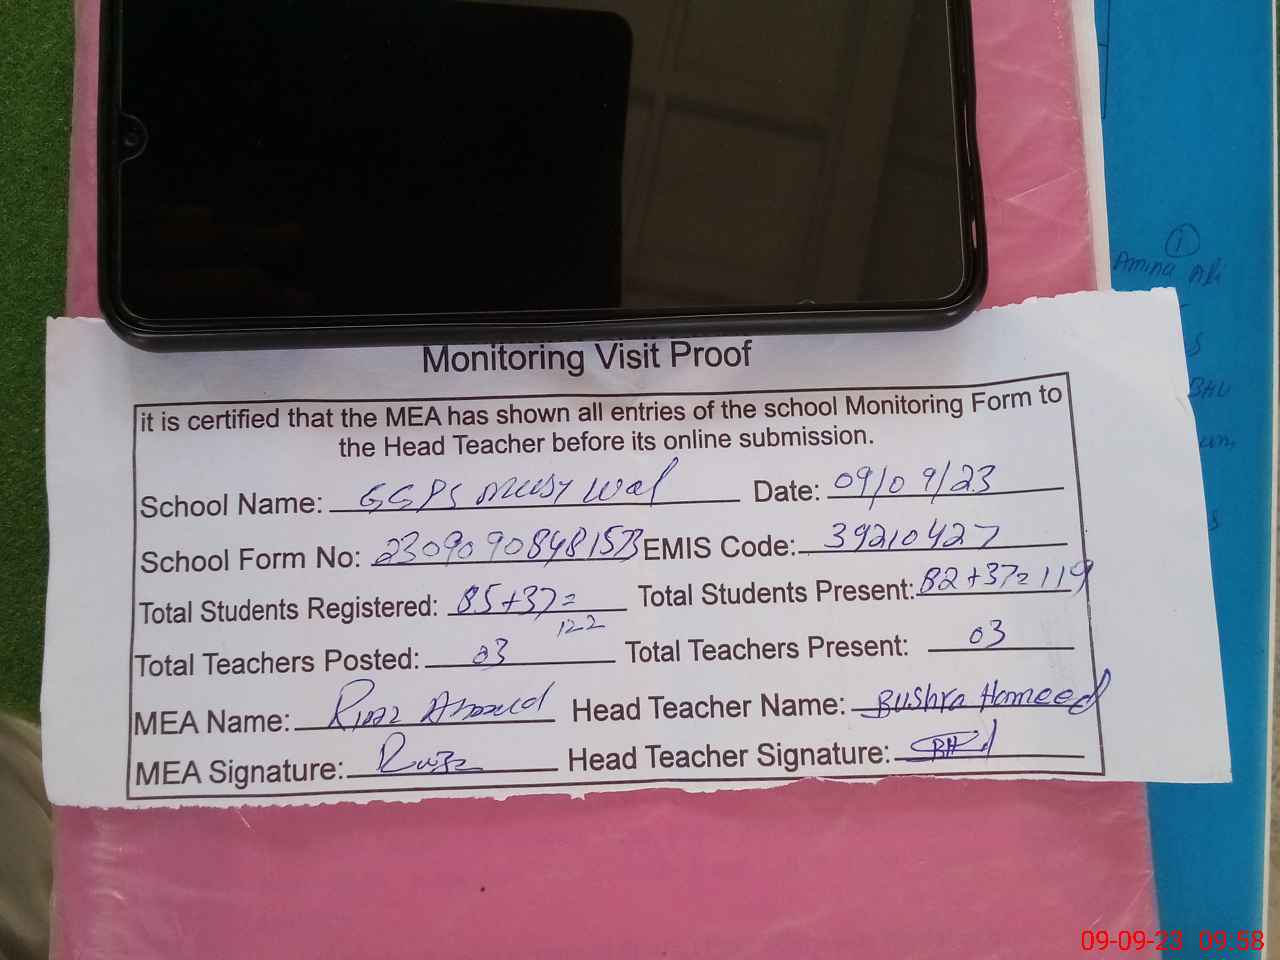 Monitoring Visit Proof
it is certified that the MEA has shown all entries of the school Monitoring Form to
the Head Teacher before its online submission.
School Name: GGPS Musy Wal Date: 09/09/23
School Form No: 2309090848153 EMIS Code: 39210427
Total Students Registered: 85+37= 122 Total Students Present: 82+37=119
Total Teachers Posted: 03 Total Teachers Present: 03
MEA Name: Riaz Ahmed Head Teacher Name: Bushra Hameed
MEA Signature: Riaz Head Teacher Signature:
1
Amina Ali
BHU
09-09-23 09:58